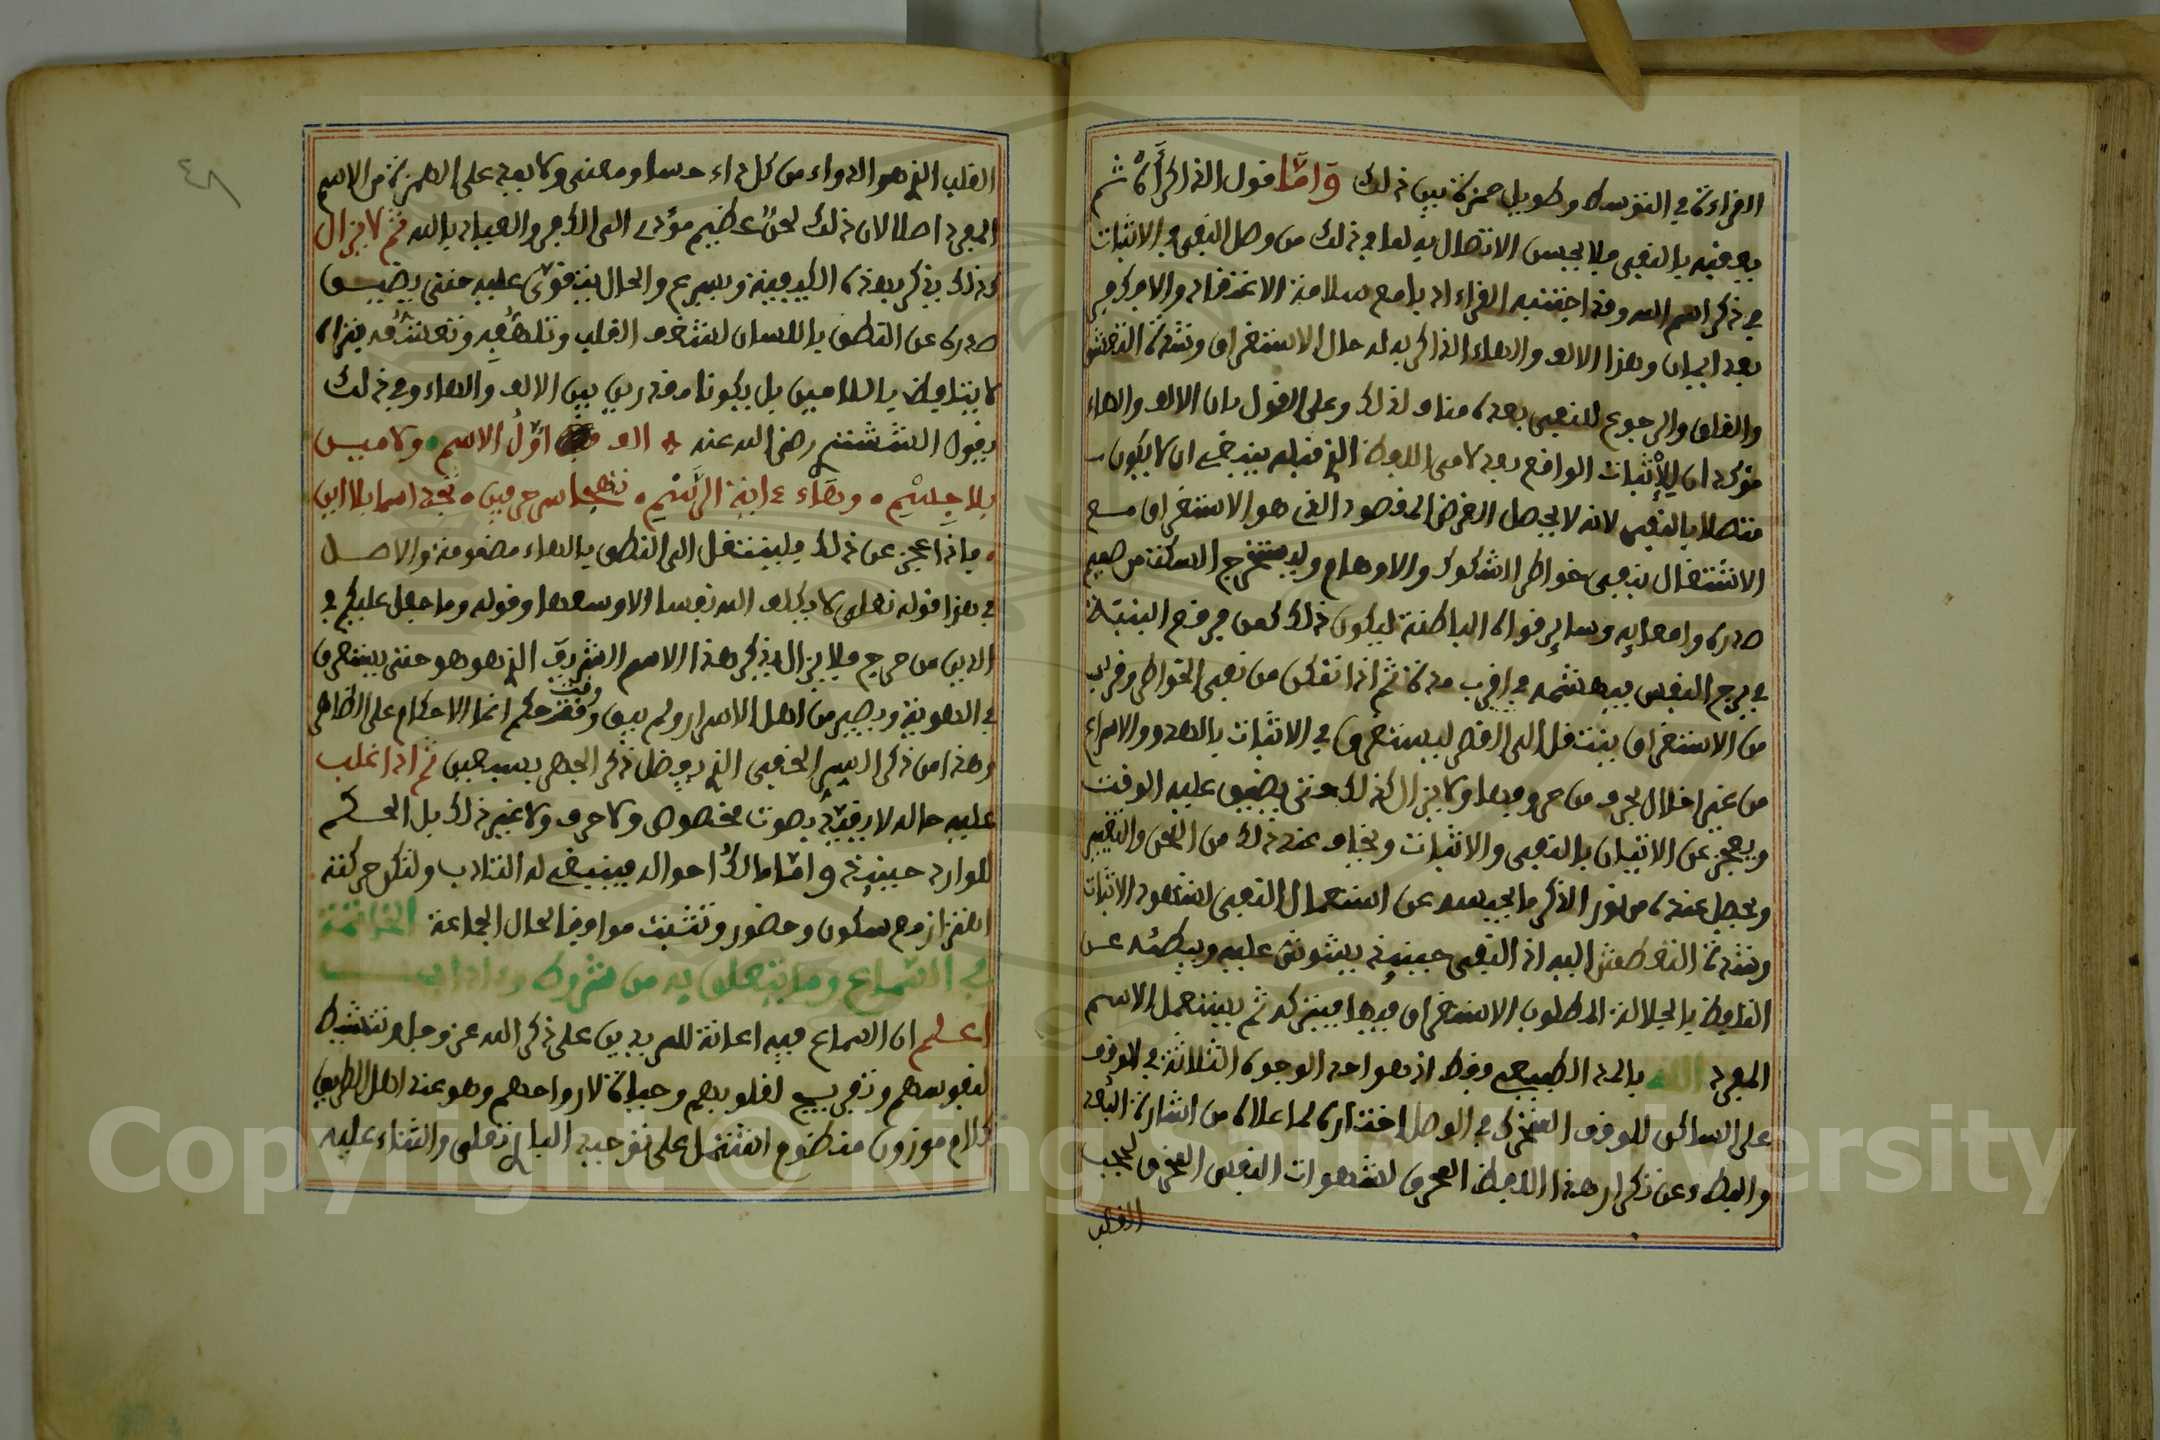 القراءة في التوسط وطويل حمزة بين ذلك واما قول الذاكر أالاه ثم
يوفيه بالنفي فلا يحسن الاتصال به لما في ذلك من وصل النفي في الاثبات
في ذكر اسم الله وقد اجتنبه القراء ادبا مع سلامة الاعتقاد والامر كفر
بعد ايمان وهذا الالف والهاء الذاكر به له حال الاستغراق وشدة التعطش
والقلق والرجوع للنفي بعده مناف لذلك وعلى القول بان الالف والهاء
مؤكدان للإثبات الواقع بعد لامي اللفظ الذي قبله ينبغي ان لا يكون
متصلا بالنفي لانه لا يحصل الغرض المقصود الذي هو الاستغراق مع
الاشتغال بنفي خواطر الشكوك والاوهام وليستخرج السكتة من صميم
صدره وامعايه وساير قواه الباطنة ليكون ذلك كمن فرقع البنبة
في برج النفس فيهدمه في اقرب مدة ثم اذا تمكن من نفي الخواطر وقرب
من الاستغراق ينتقل الى القصر ليستغرق في الاثبات بالهدو والاسراع
من غير اخلال بحرف من حروفها ولا يزال كذلك حتى يضيق عليه الوقت
ويعجز عن الاتيان بالنفي والاثبات ويخاف عند ذلك من اللحن والتغيير
ويحصل عنده من نور الذكر ما يحبسه عن استعمال النفي لشهود الاثبات
وشدة التعطش اليه اذ النفي حينيذ يشوش عليه ويبطئه عن
التلفظ بالجلالة المطلوب الاستغراق فيها فيتركه ثم يستعمل الاسم
المفرد الله بالمد الطبيعي فقط اذ هو احد الوجوه الثلاثة في الوقف
على الساكن للوقف المتحرك في الوصل اختاره لما علاه من اشارة البعد
والفطد وعن تكرار هذا اللفظ المحرق لشهوات النفس المخرق لحجب
القلب
القلب الذي هو الدواء من كل داء حسا ومعنى ولا يعد على الهمزة من الاسم
المفرد اصلا لان ذلك لحن عظيم مؤد الى الكفر والعياذ بالله ثم لا يزال
كذلك يذكر بهذه الكيفية ويسرع والحال يتقوى عليه حتى يضيق
صدره عن النطق باللسان لشغف القلب وتلهفه وتعشقه فتراه
لا يتلفظ باللامين بل يكونا مقدرين بين الالف والهاء وفي ذلك
يقول الششتري رضي الله عنه الف اول الاسم ولامين
بلا جسم وهاء ءاية الرسم تهجا سر حرفين تجد اسما بلا اين
فاذا عجز عن ذلك فلينتقل الى النطق بالهاء مضمومة والاصل
في هذا قوله تعلى لا يكلف الله نفسا الا وسعها وقوله وما جعل عليكم في
الدين من حرج فلا يزال يذكر هذا الاسم الشريف الذي هو هو حتى يستغرق
في الهوية ويصير من اهل الاسرار ولم يبق وقت حكم انما الاحكام على الظاهر
وهذا من ذكر السر الخفي الذي يفضل ذكر الجهر بسبعين ثم اذا غلب
عليه حاله لا يقيد بصوت مخصوص ولا حرف ولا غير ذلك بل الحكم
للوارد حينيذ واما مالك احواله فينبغي له التادب ولتكن حركته
اهتزاز مع سكون وحضور وتشبث موافق لحال الجماعة الخاتمة
في السماع وما يتعلق به من شروط وءاداب
اعلم ان السماع فيه اعانة للمريدين على ذكر الله عز وجل وتنشيط
لنفوسهم وتفريح لقلوبهم وحياة لارواحهم وهو عند اهل الطريق
كلام موزون منظوم اشتمل على توحيد الباري تعلى والثناء عليه